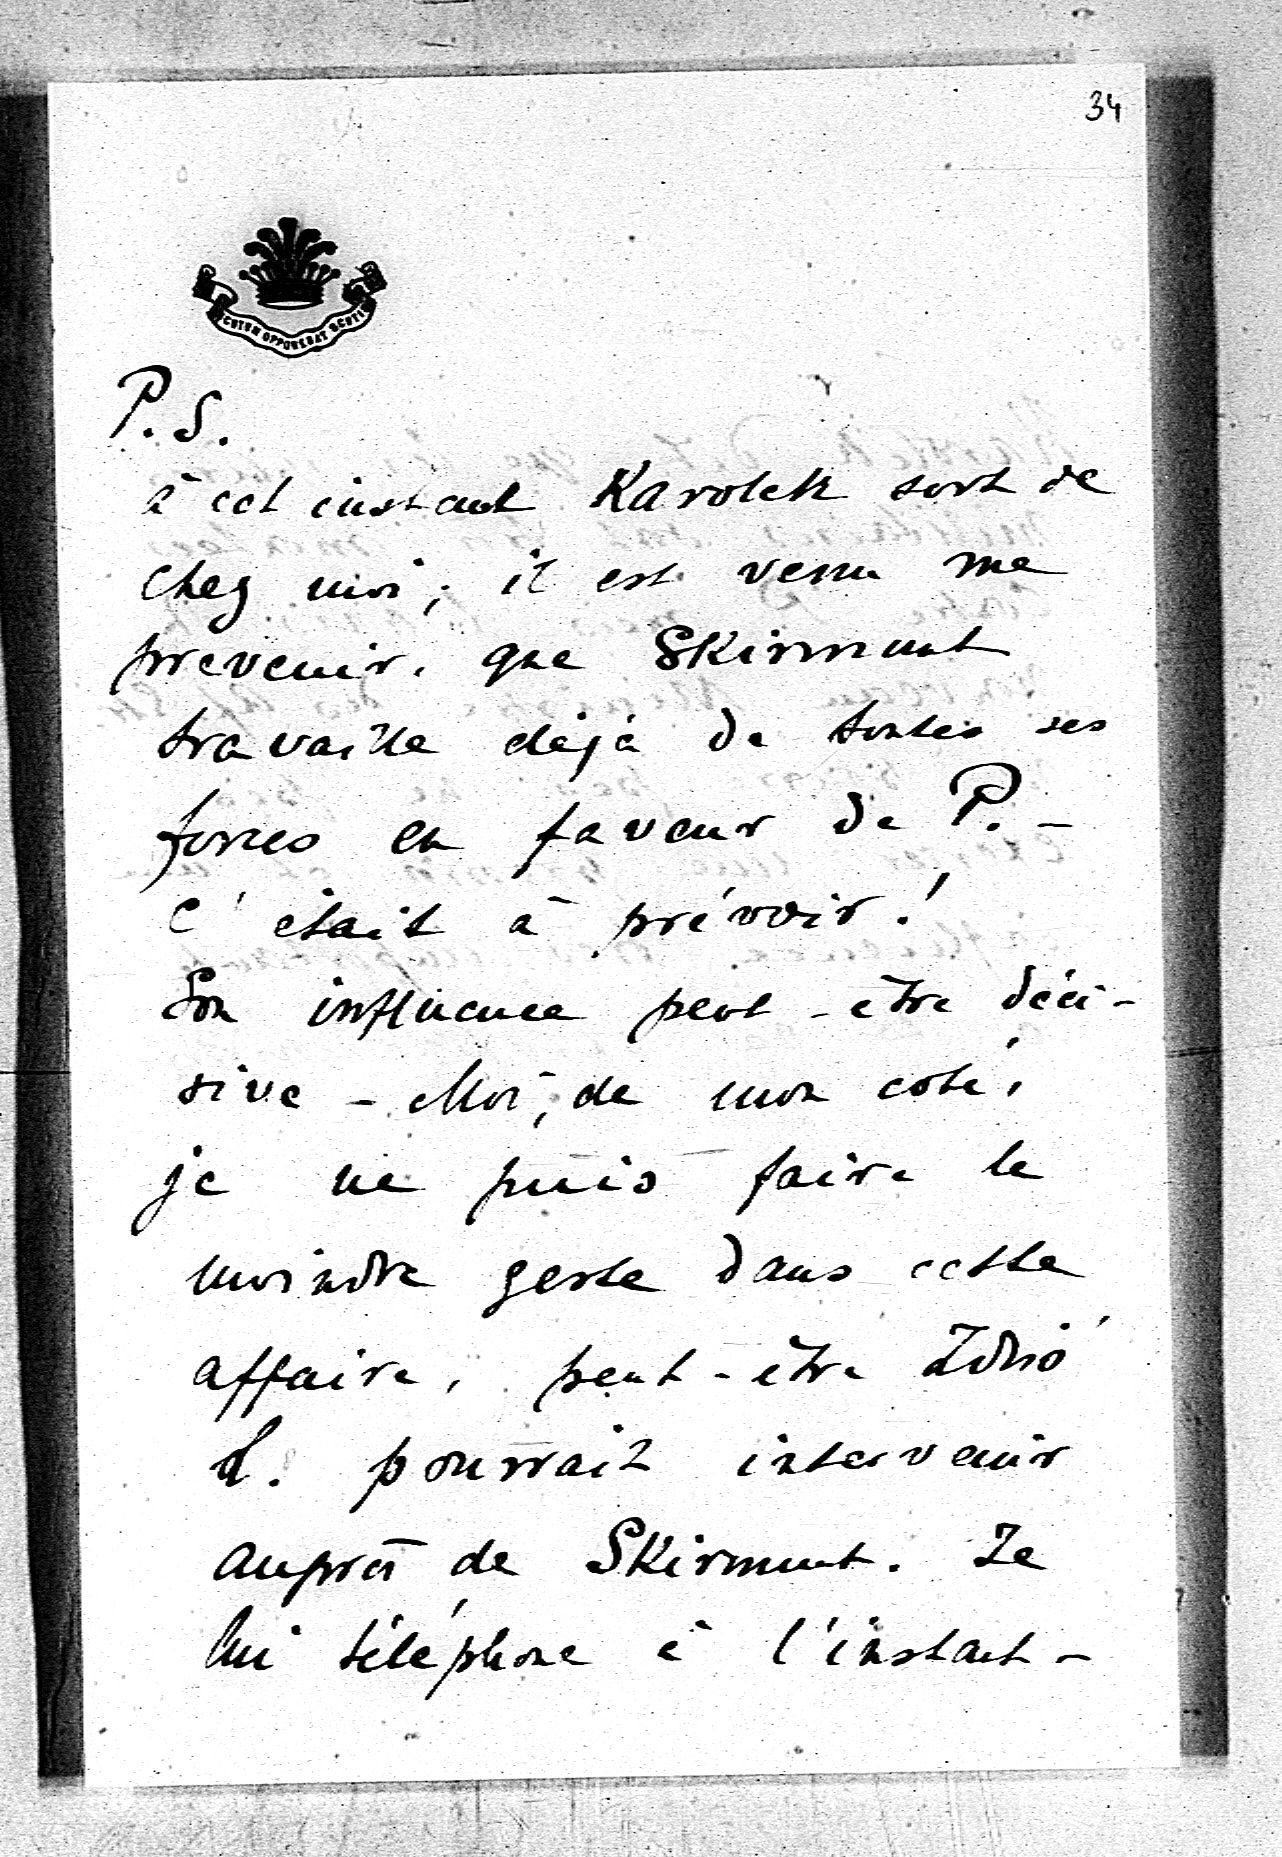 34
SCUTUM OPPONEBAT SCUTIS
P. S.
à cet instant Karolek sort de
chez moi; il est venu me
prevenir, que Skirmunt
travaille déjà de toutes ses
forces en faveur de P. -
C'était à prévoir!
Son influence peut-être déci-
sive - Moi, de mon coté,
je ne puis faire le
moindre geste dans cette
affaire, peut-être Zdziś
L. pourrait intervenir
auprès de Skirmunt. Je
lui téléphone à l'instant -